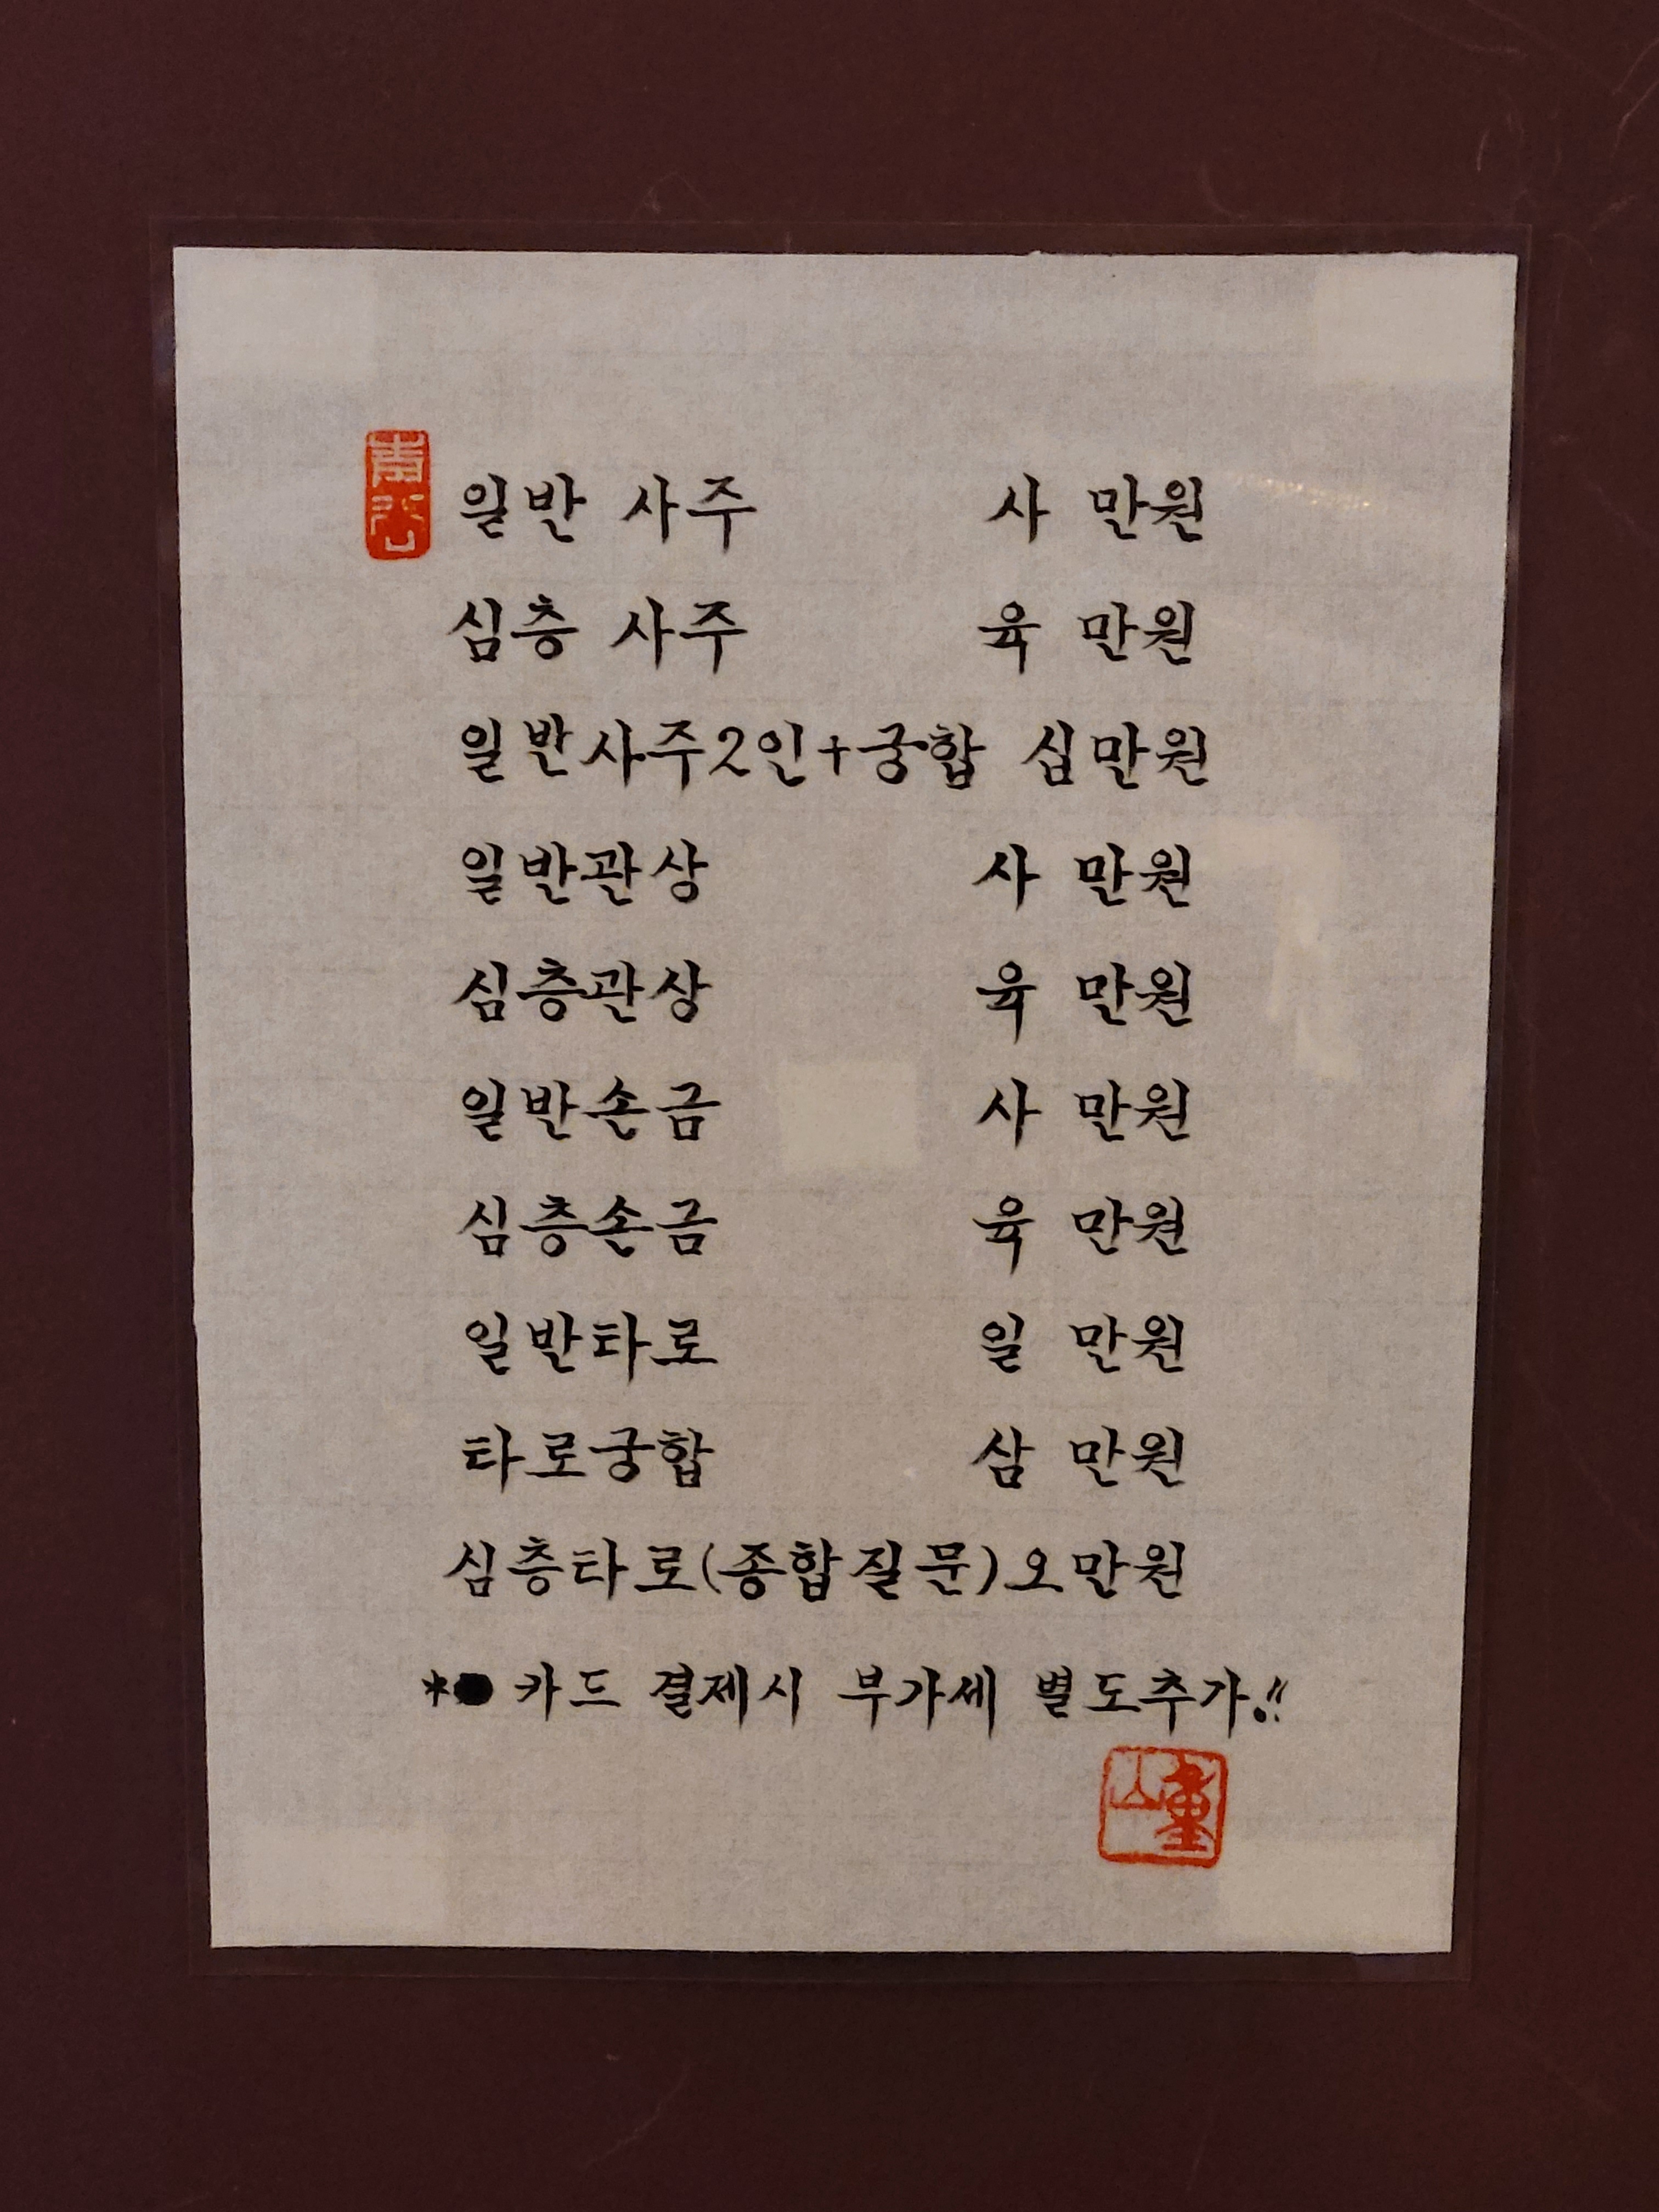 일반 사주 사 만원
심층 사주 육 만원
일반사주2인+궁합 십만원
일반관상 사 만원
심층관상 육 만원
일반손금 사 만원
심층손금 육 만원
일반타로 일 만원
타로궁합 삼 만원
심층타로(종합질문)오만원
*● 카드 결제시 부가세 별도추가.!!